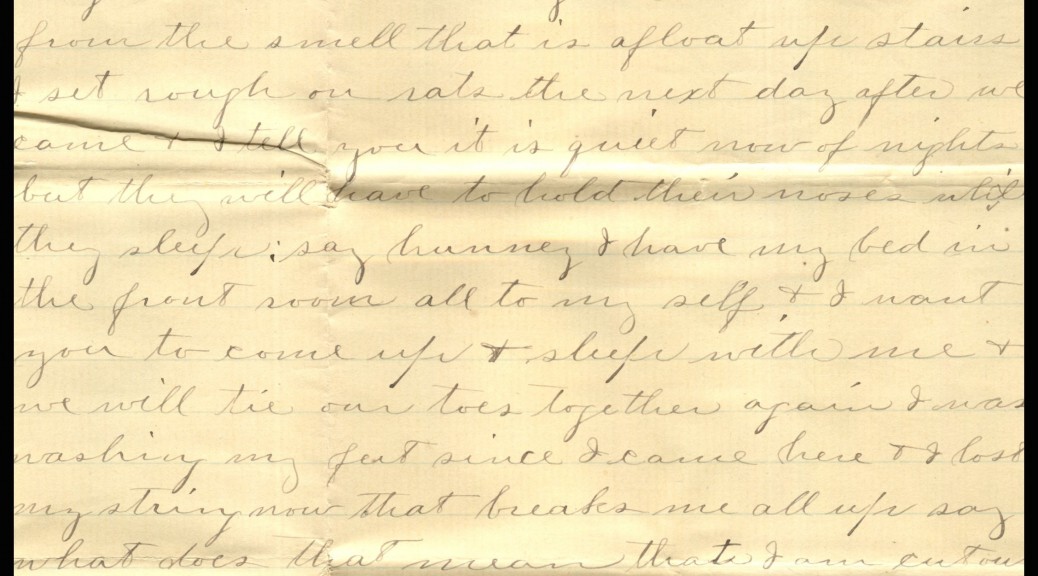 from the smell that is afloat up stairs
I set rough on rats the next day after we
came & I tell you it is quiet now of nights
but they will have to hold their noses while
they sleep; say hunney I have my bed in
the front room all to my self & I want
you to come up & sleep with me &
we will tie our toes together again I was
washing my feet since I came here & I lost
my string now that breaks me all up say
what does that mean that I am cut out